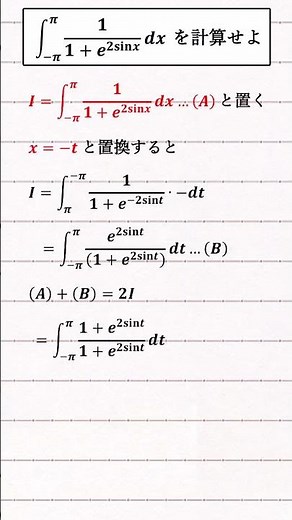 ∫_{-π}^{π} 1/(1+e^{2sinx}) dx を計算せよ
I = ∫_{-π}^{π} 1/(1+e^{2sinx}) dx … (A) と置く
x = -t と置換すると
I = ∫_{π}^{-π} 1/(1+e^{-2sint}) · -dt
= ∫_{-π}^{π} e^{2sint}/(1+e^{2sint}) dt … (B)
(A) + (B) = 2I
= ∫_{-π}^{π} (1+e^{2sint})/(1+e^{2sint}) dt